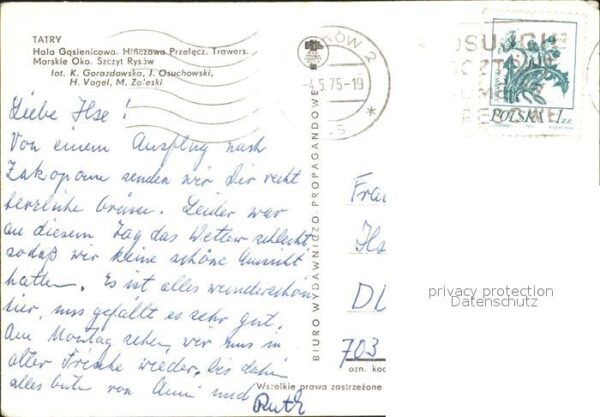 TATRY
Hala Gąsienicowa. Hińczowa Przełęcz. Trawers.
Morskie Oko. Szczyt Rysów
fot. K. Gorazdowska, J. Osuchowski,
H. Vogel, M. Zaleski
Liebe Ilse!
Von einem Ausflug nach
Zakopane senden wir Dir recht
herzliche Grüsse. Leider war
an diesem Tag das Wetter schlecht,
sodaß wir keine schöne Aussicht
hatten. Es ist alles wunderschön
hier, uns gefällt es sehr gut.
Am Montag sehen wir uns in
alter Frische wieder, bis dahin
alles Gute von Anni und
Ruth
BIURO WYDAWNICZO-PROPAGANDOWE
Wszelkie prawa zastrzeżone
KÓW 2
-4.5.75-19
POLSKA 1 ZŁ
Frau
Ils
DD
703
ozn. kod
privacy protection
Datenschutz